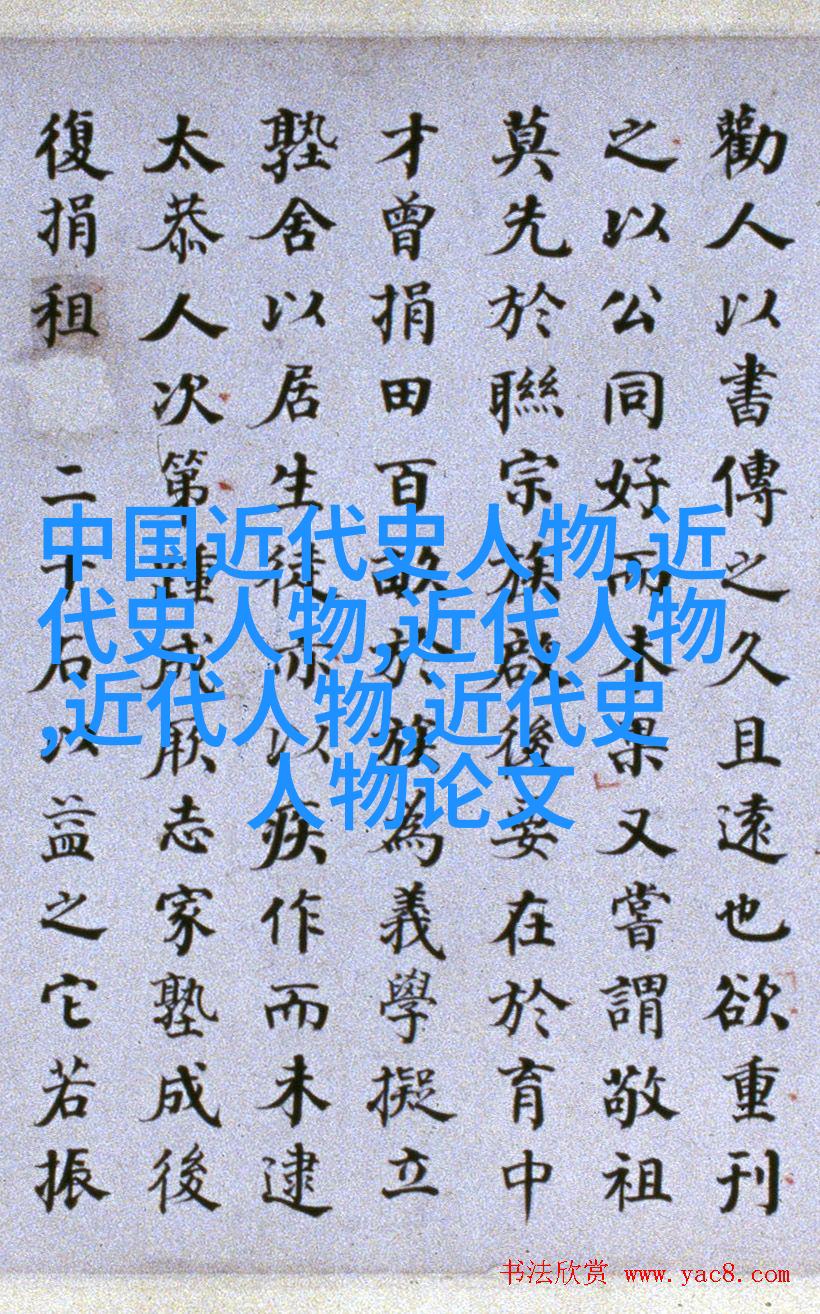 勸人以書傳之久且遠也欲重刊
之以公同好而未果又嘗謂敬祖
莫先於聯宗族啟後在於育中
才曾捐田百畝於族為義學擬立
塾舍以居生徒亦以疾作而未逮
太恭人次第踵成厥志家塾成後
復捐租二千石以益之它若振
中国近代史人物,近
代史人物,近代人物
,近代人物,近代史
人物论文
书法欣赏 www.yac8.com